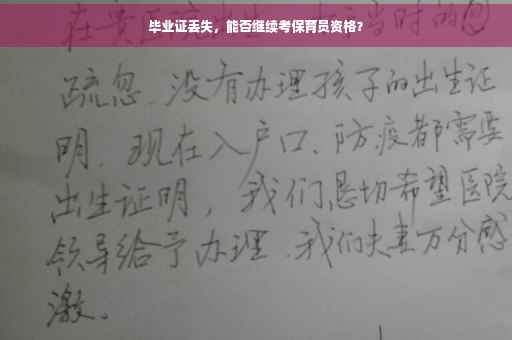 毕业证丢失，能否继续考保育员资格？
疏忽.没有办理孩子的出生证
明.现在入户口、防疫都需要
出生证明，我们恳切希望医院
领导给予办理.我们夫妻万分感
激。